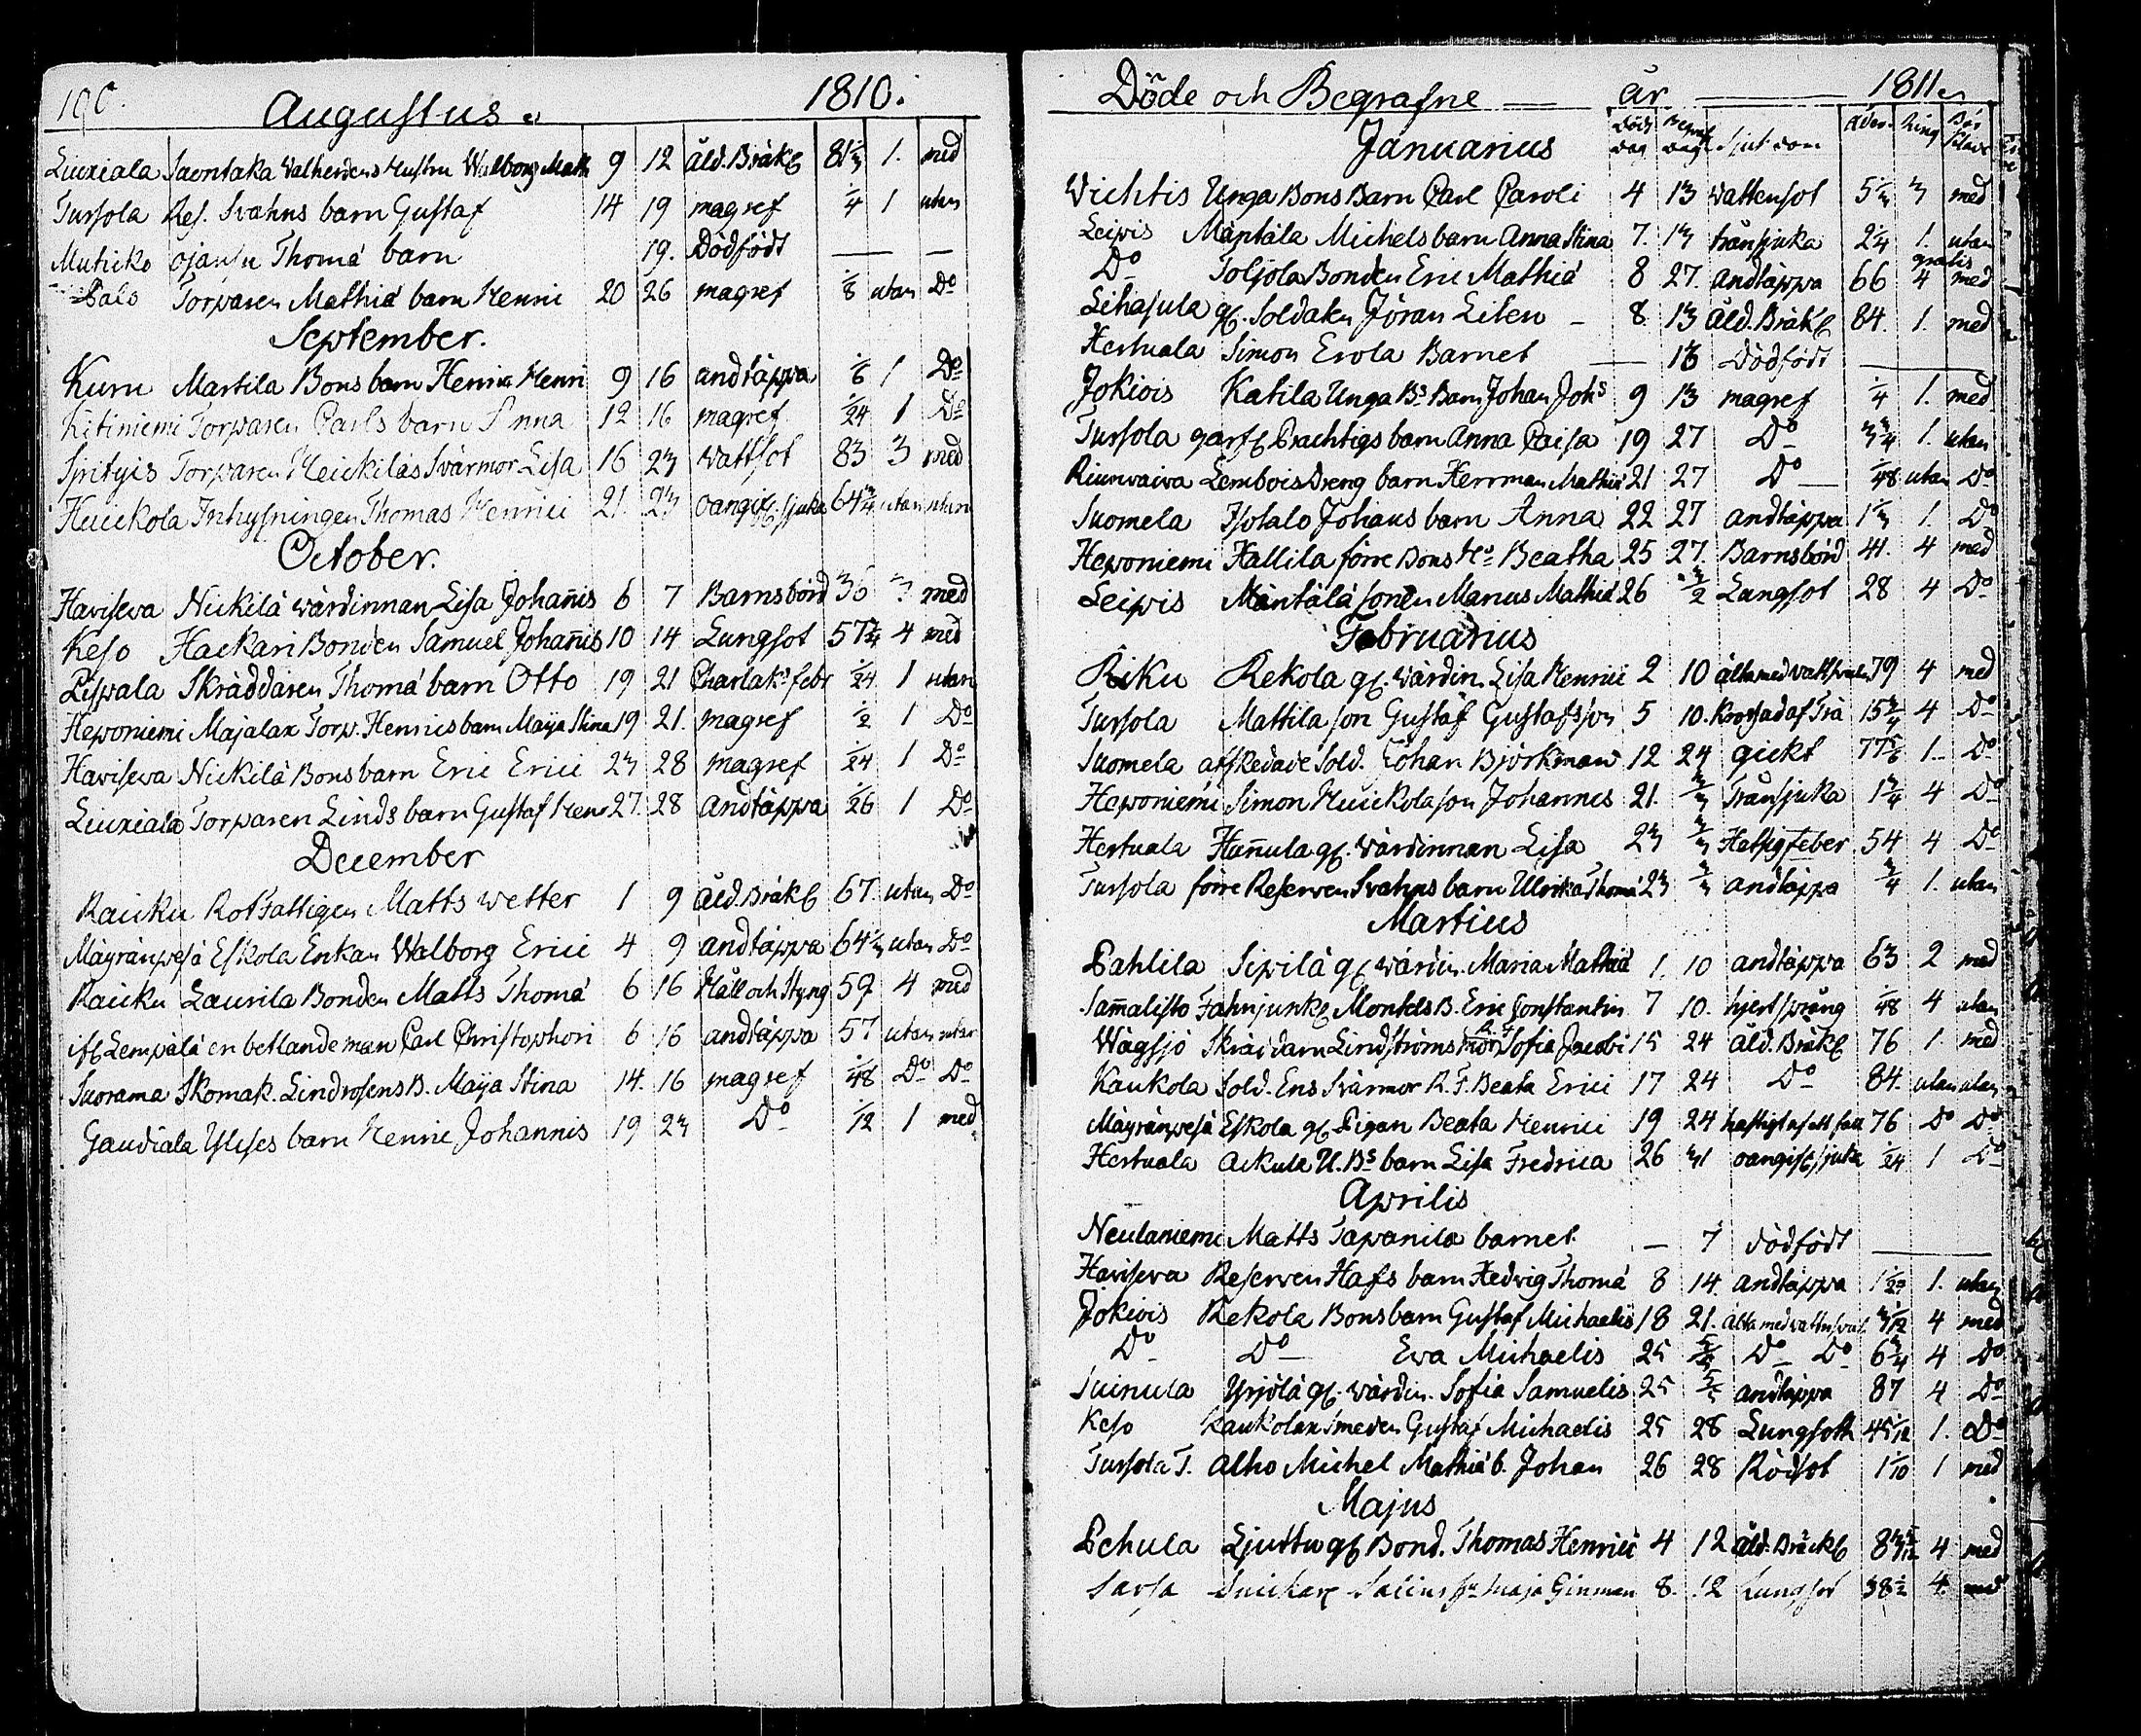 190. Augustus. 1810.
Liuxiala Saontaka Walherdens Hustru Walborg Math 9 12 åld. Bräkl 81 1/2 1. med
Tursola Res. Svahns barn Gustaf 14 19 magref 1/4 1 utan
Muticko ojansu Thomæ barn 19. Dödfödt — —
Salo Torparen Mathiæ barn Henric 20 26 magref 1/8 utan Do
September.
Kuru Martila Bons barn Henric Henri 9 16 andtäppa 1/6 1 Do
Kitiniemi Torparen Carls barn Anna 12 16 magref 1/24 1 Do
Torparen Heickiläs Svärmor Lisa 16 23 Wattsot 83 3 med
Huickola Inhysningen Thomas Henrici 21. 23 oangifl. sjukd 64 3/4 utan utan
October.
Havisewa Nickilä wärdinnan Lisa Johannis 6 7 Barnsbörd 36 3 med
Keso Hackari Bonden Samuel Johannis 10 14 Lungsot 57 3/4 4 med
Lispala Skräddaren Thomæ barn Otto 19 21 Charlak. febr 1/24 1 utan
Heponiemi Majalax Torp. Henrics barn Maja Stina 19 21. magref 1/2 1 Do
Havisewa Nickilä Bons barn Eric Erici 23 28 magref 1/24 1 Do
Liuxiala Torparen Linds barn Gustaf Hen 27. 28 Andtäppa 1/26 1 Do
December
Raicku Rotfattigen Matts wetter 1 9 åld. Bräkl 67. utan Do
Mäyränpesä Eskola Enkan Walborg Erici 4 9 andtäppa 64 1/2 utan Do
Raicku Laurila Bonden Matts Thomæ 6 16 Håll och Styng 59 4 med
ifl Lempälä en betlande man Carl Christophori 6 16 andtäppa 57 utan utan
Suorama Skomak. Lindrosens B. Maja Stina 14. 16 magref 1/48 Do Do
Gaudiala Ylises barn Henric Johannis 19 23 Do 1/12 1 med
Döde och Begrafne — år — 1811.
Januarius Döds dag Begraf dag Sjukdom Ålder. Ring Bår kläde
Wichtis Unga Bons Barn Carl Caroli 4 13 Wattensot 5 1/2 3 med
Leipis Mäntälä Michels barn Anna Stina 7. 13 tränsjuka 2 1/4 1. utan
Do Toljola Bonden Eric Mathiæ 8 27. andtäppa 66 gratis 4 med
Lihasula gl. Soldaten Jöran Liten — 8 13 åld. Bräkl 84. 1. med
Hertuala Simon Erola Barnet — 13 Dödfödt —
Jokiois Katila Unga Bs Barn Johan Johs 9 13 magref 1/4 1. med
Tursola Prachtigs barn Anna Caisa 19 27 Do 3 3/4 1. utan
Riunwaiwa Lembois Dreng barn Herrman Mathiæ 21 27 Do — 1/48 utan Do
Suomela Isotalo Johans barn Anna 22 27 andtäppa 1 1/3 1. Do
Heponiemi Hallila förre Bons Ho Beatha 25 27. Barnsbörd 41. 4 med
Leipis Mäntälä sonen Marcus Mathiæ 26 3/2 Lungsot 28 4 Do
Februarius
Riku Rekola gl. wärdin. Lisa Henrici 2 10 älta med 79 4 med
Tursola Mattila son Gustaf Gustafsson 5 10. Krossad af Trä 15 3/4 4 Do
Suomela afskedade Sold. Johan Björkman 12 24 gickt 77 5/6 1. Do
Heponiemi Simon Huickola son Johannes 21. 3/3 Tränsjuka 1 3/4 4 Do
Hertuala Hannula gl. Wärdinnan Lisa 23 3/3 Hetsig feber 54 4 Do
Tursola förre Reserven Svahns barn Ulrika Thomæ 23 3/3 andtäppa 3/4 1. utan
Martius
Pahlila Sipilä gl. wärdin. Maria Mathiæ 1. 10 andtäppa 63 2 med
Sammalisto Fahnjunk. Montels B. Eric Constantin 7 10. hjertsprång 1/48 4 utan
Wägsjö Skräddarn Lindströms mor Sofia Jacobi 15 24 åld. Bräkl 76 1. med
Kaukola Sold. Ens Svärmor R. F. Beata Erici 17 24 Do 84. utan utan
Mäyränpesä Eskola gl. Pigan Beata Henrici 19 24 hastigt af ett fall 76 Do Do
Hertuala Ackula U. Bs barn Lisa Fredrica 26 31 oangifl. sjukd 1/24 1 Do
Aprilis
Neulaniemi Matts Tapanila barnet — 7 dödfödt —
Havisewa Reserven Hafs barn Hedvig Thomæ 8 14. andtäppa 1 1/20 1. utan
Jokiois Rekola Bons barn Gustaf Michaelis 18 21. älta med 4 med
Do Do Eva Michaelis 25 Do Do 6 3/4 4 Do
Suinula Yrjölä gl. wärdin. Sofia Samuelis 25 5/5 andtäppa 87 4 Do
Keso Kaukolax Smeden Gustaf Michaelis 25 28 Lungsoth 45 1/12 1. Do
Tursola T. Alho Michel Mathiæ b. Johan 26 28 Rödsot 1 1/10 1 med
Majus
Pehula Ljuttu gl. Bond. Thomas Henrici 4 12 åld. Bräckl 83 5/12 4 med
Sarsa Snickar Maja Ginman 8. 12 Lungsot 38 1/2 4 med